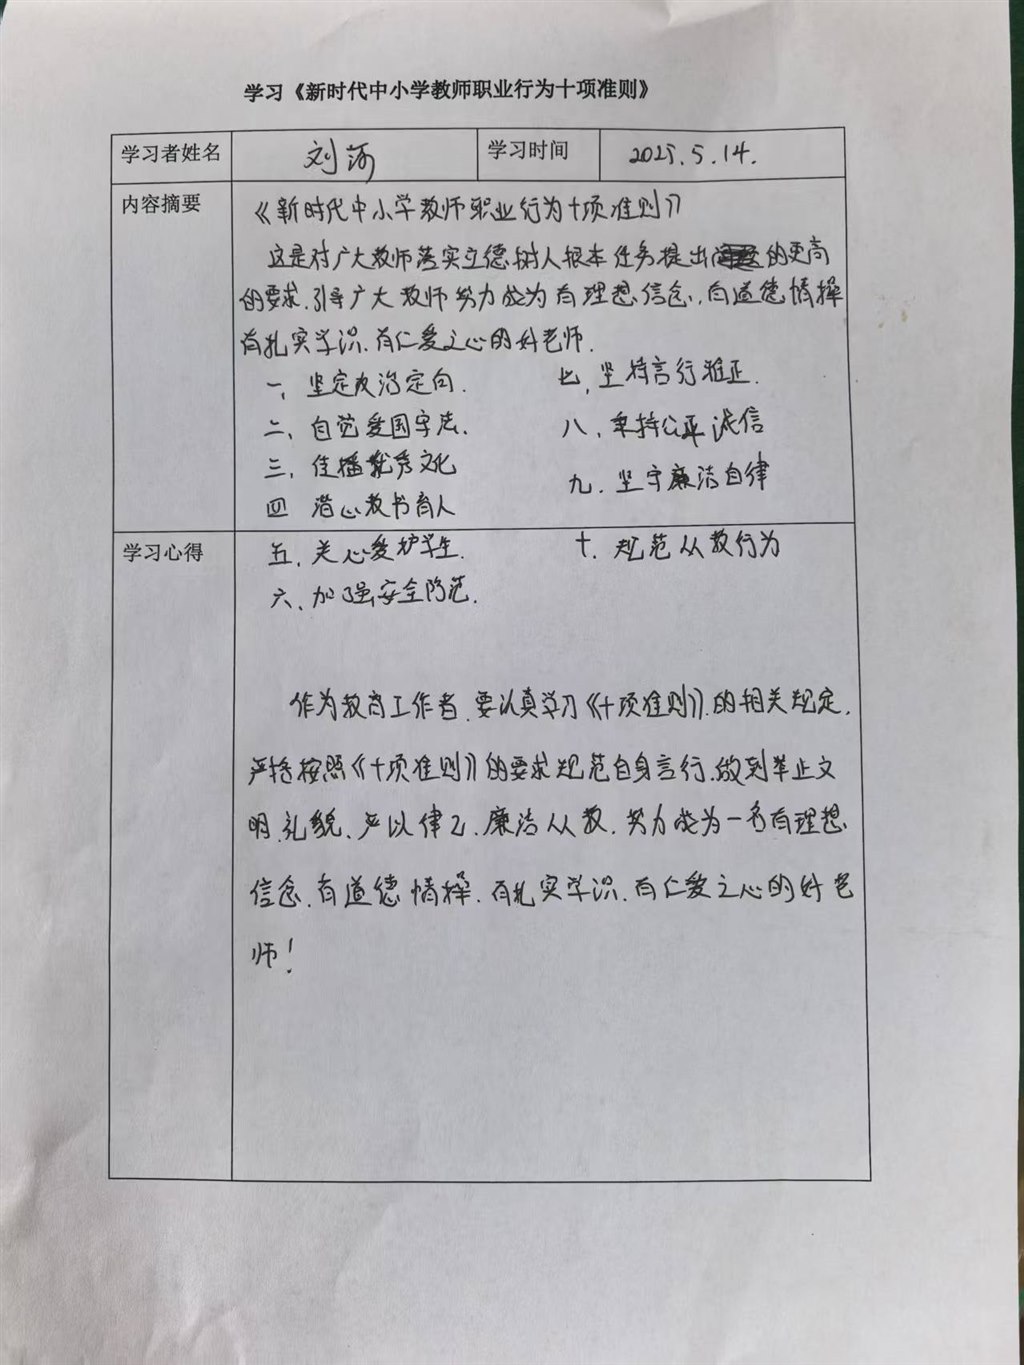 学习《新时代中小学教师职业行为十项准则》
学习者姓名 刘 学习时间 2025.5.14.
内容摘要
《新时代中小学教师职业行为十项准则》
这是对广大教师落实立德树人根本任务提出的更高
的要求.引导广大教师努力成为有理想信念、有道德情操
有扎实学识、有仁爱之心的好老师.
一、坚定政治定向.
二、自觉爱国守法.
三、传播优秀文化
四 潜心教书育人
七、坚持言行雅正.
八、秉持公平诚信
九.坚守廉洁自律
学习心得
五、关心爱护学生.
六、加强安全防范.
十.规范从教行为
作为教育工作者.要认真学习《十项准则》.的相关规定.
严格按照《十项准则》的要求规范自身言行.做到举止文
明.礼貌、严以律己.廉洁从教.努力成为一名有理想
信念.有道德情操.有扎实学识.有仁爱之心的好老
师!